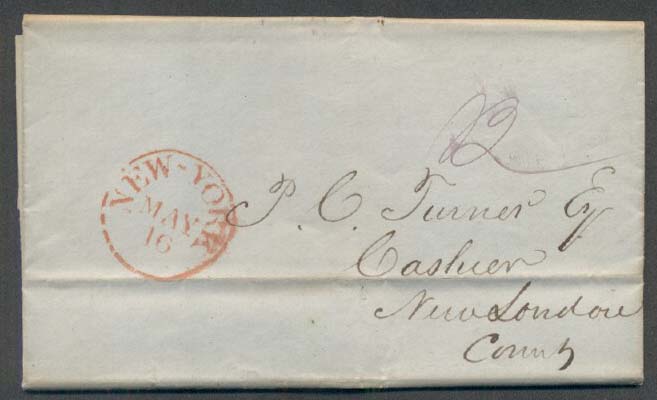 12
NEW-YORK
MAY
16
P. C. Turner Esq
Cashier
New London
Connt